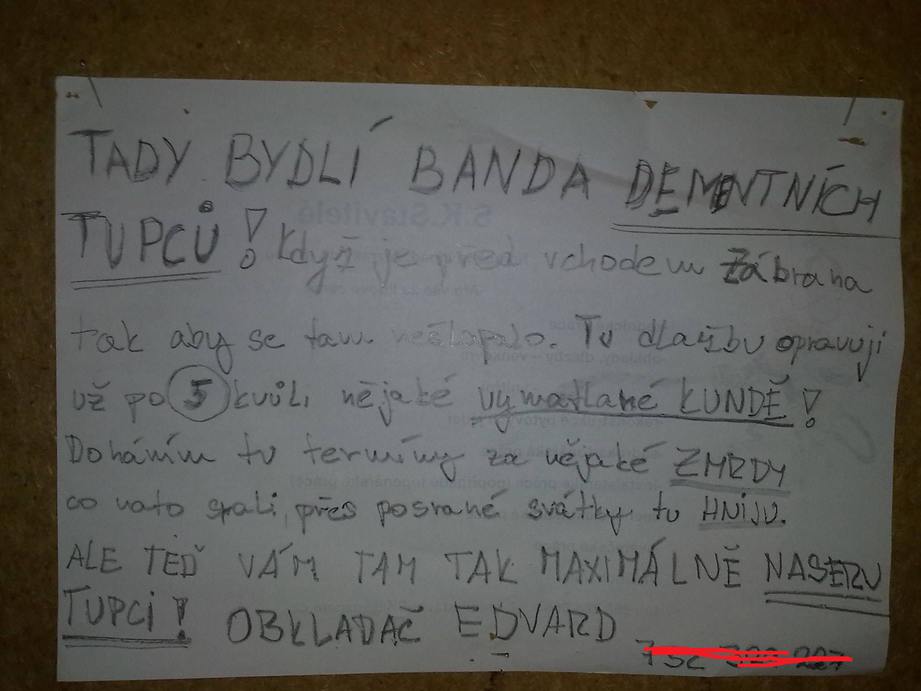 TADY BYDLÍ BANDA DEMNTNÍCH
TUPCŮ! Když je před vchodem zábrana
tak aby se tam nešlapalo. Tu dlažbu opravuji
už po 5 kvůli nějaké vymatlané KUNDĚ!
Doháním tu termíny za nějaké ZMRDY
co nato srali, přes posrané svátky tu HNIJU.
ALE TEĎ VÁM TAM TAK MAXIMÁLNĚ NASERU
TUPCI! OBKLADAČ EDVARD
S.K.Stavitelé